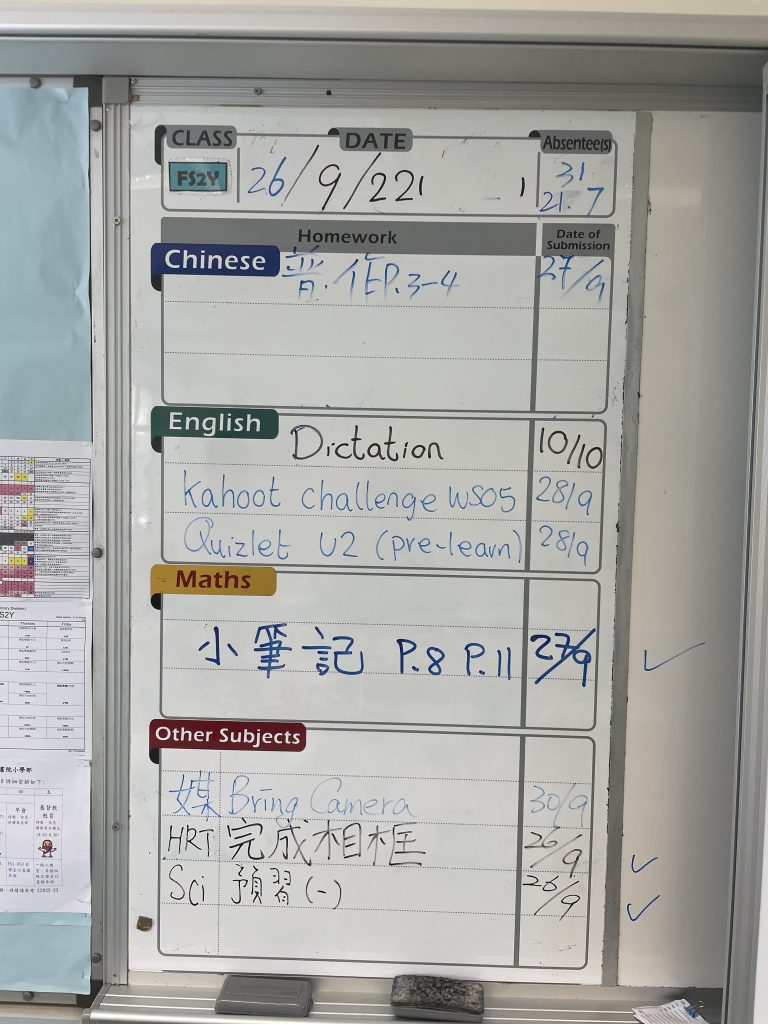 CLASS DATE Absentee(s)
FS2Y 26/9/22 31
21. 7
Homework Date of Submission
Chinese 普.作P.3-4 27/9
English
Dictation 10/10
Kahoot challenge WS05 28/9
Quizlet U2 (pre-learn) 28/9
Maths
小筆記 P.8 P.11 27/9
Other Subjects
媒 Bring Camera 30/9
HRT 完成相框 26/9
Sci 預習(一) 26/9
S2Y
Thursday Friday
書院小學部
早會 基督教教育